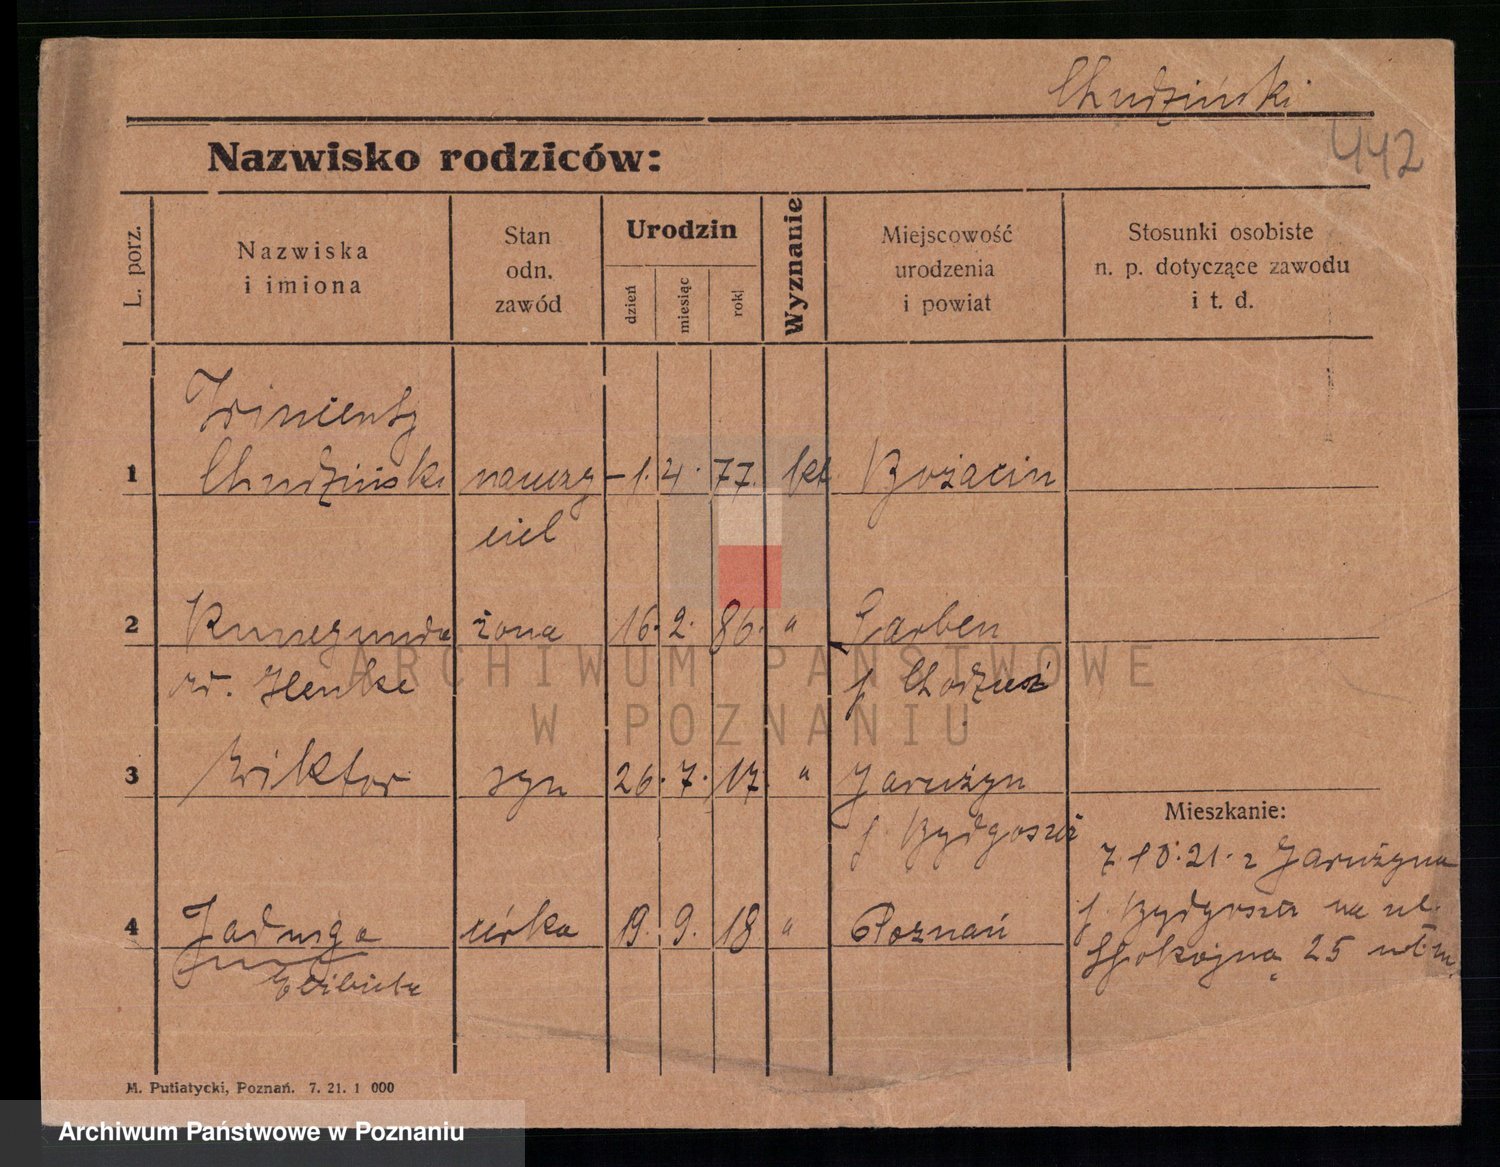 Chudziński
442
Nazwisko rodziców:
L. porz.
Nazwiska
i imiona
Stan
odn.
zawód
Urodzin
dzień
miesiąc
rok
Wyznanie
Miejscowość
urodzenia
i powiat
Stosunki osobiste
n. p. dotyczące zawodu
i t. d.
Wincenty
1 Chudziński nauczy- 1. 4. 77. kt Bożacin
ciel
2 Kunegunda żona 16. 2. 86. " Garben
ur. Henke p. Chodzież
3 Wiktor syn 26. 7. 17. " Jarużyn
p. Bydgoszcz
Mieszkanie:
7.10.21. z Jarużyna
4 Jadwiga córka 19. 9. 18 " Poznań
p. Bydgoszcz na ul.
Spokojną 25
Elżbieta
M. Putiatycki, Poznań. 7. 21. 1 000
ARCHIWUM PAŃSTWOWE
W POZNANIU
Archiwum Państwowe w Poznaniu